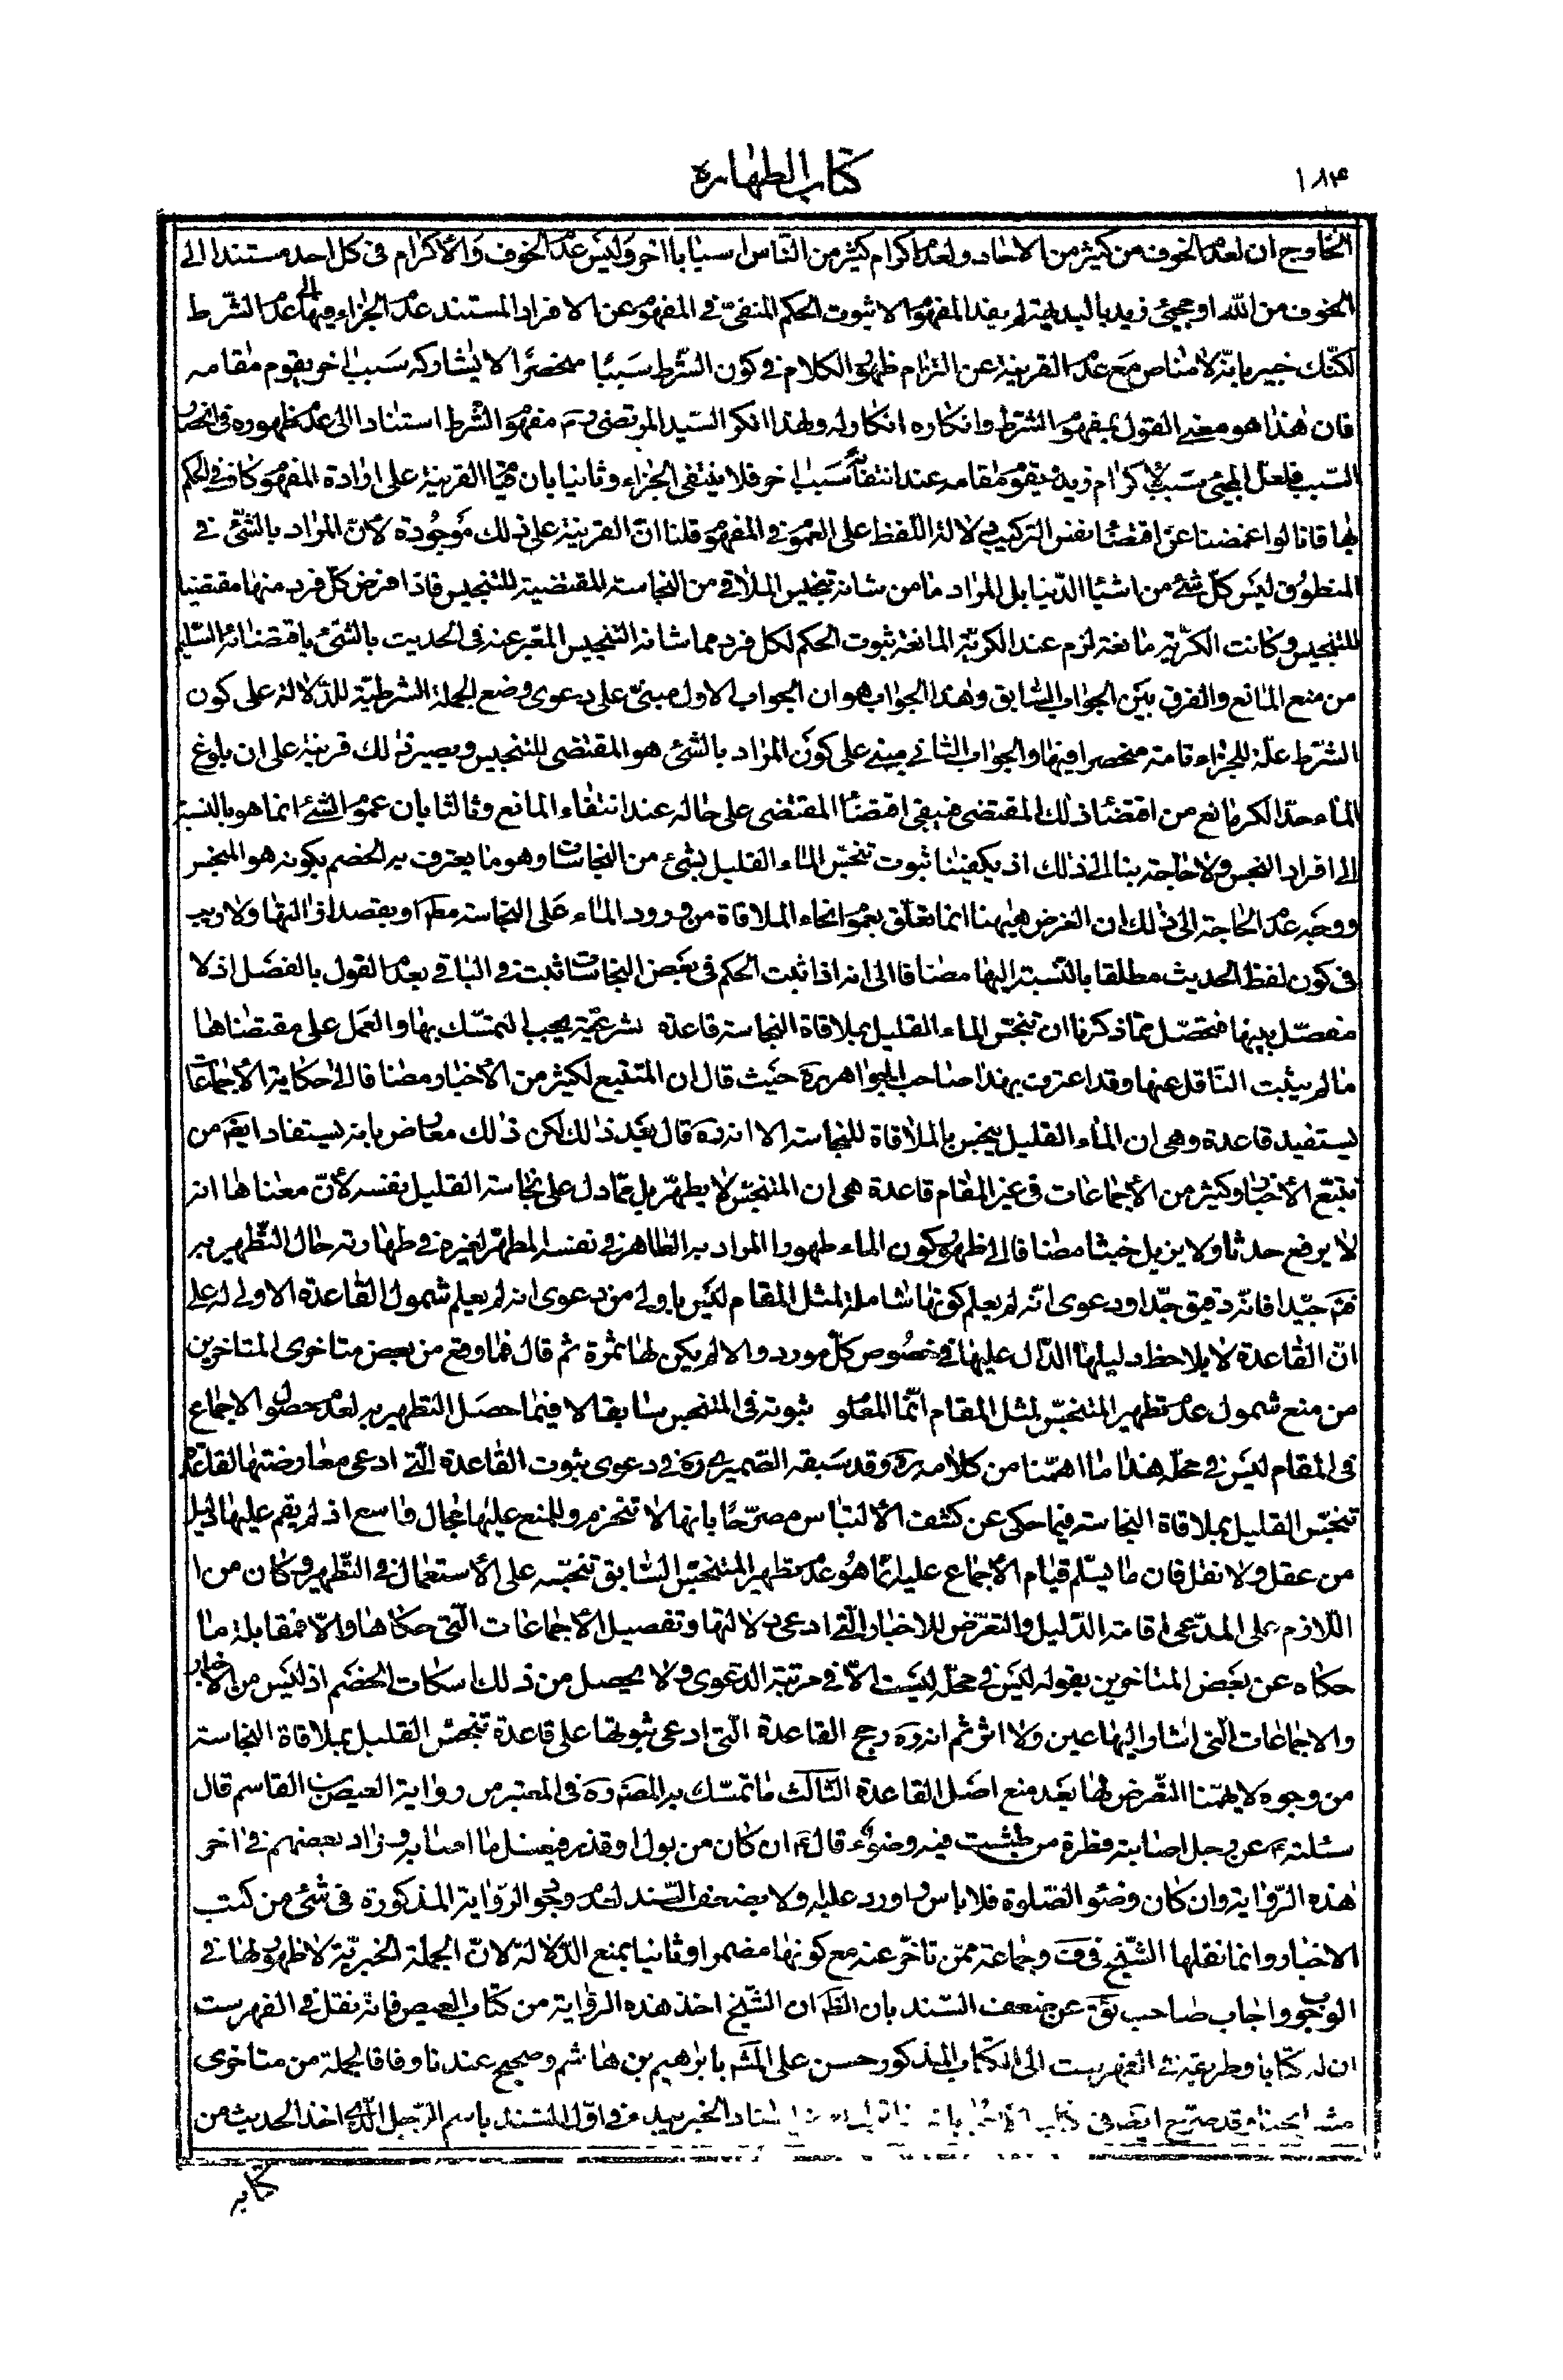 ۱۸۴
كتاب الطهارة
الخارج ان لعدم الخوف من كثير من الاحاد ولعدم اكرام كثير من الناس اسبابا اخر وليس عدم الخوف والأكرام فى كل احد مستندا الى
الخوف من الله او مجيئ زيد بالبديهة لم يفد المفهوم الا ثبوت الحكم المنفىّ فى المفهوم عن الافراد المستند عدم الجزاء فيها الى عدم الشّرط
لكنّك خبير بانّه لا مناص مع عدم القرينة عن التزام ظهور الكلام فى كون الشّرط سببًا منحصرًا لا يشاركه سبب اخر يقوم مقامه
فان هذا هو معنى القول بمفهوم الشّرط وانكاره انكار له ولهذا انكر السّيد المرتضى ره مفهوم الشّرط استنادا الى عدم ظهوره فى انحصار
السّبب فلعلّ المجيئ سبب لأكرام زيد ويقوم مقامه عند انتفائه سبب اخر فلا ينتفى الجزاء وثانيا بان هيهنا القرينة على ارادة المفهوم كما فى الحكم
بها فانا لو اغمضنا عن اقتضاء نفس التركيب لدلالة اللّفظ على العموم فى المفهوم قلنا انّ القرينة على ذلك موجودة لأنّ المراد بالشّئ فى
المنطوق ليس كلّ شئ من اشياء الدّنيا بل المراد ما من شانه تنجيس الملاقى من النجاسة المقتضية للتنجيس فاذا فرض كلّ فرد منها مقتضيا
للتنجيس وكانت الكرّية مانعة لزم عند الكرية المانعة ثبوت الحكم لكل فرد مما شانه التنجيس المعّبر عنه فى الحديث بالشّئ باقتضائه السّليم
من منع المانع والفرق بين الجواب السّابق وهذا الجواب هو ان الجواب الاول مبنىّ على دعوى وضع الجملة الشرطيّة للدّلالة على كون
الشّرط علّة للجزاء تامة منحصرا فيها والجواب الثانى مبنى على كون المراد بالشئ هو المقتضى للتنجيس ويصير ذلك قرينة على ان بلوغ
الماء حدّ الكر مانع من اقتضاء ذلك المقتضى فيبقى اقتضاء المقتضى على حاله عند انتفاء المانع وثالثا بان عموم الشئ انما هو بالنسبة
الى افراد النجس ولا حاجة بنا الى ذلك اذ يكفينا ثبوت تنجّس الماء القليل بشئ من النجاسات وهو ما يعترف به الخصم بكونه هو المنجس
ووجه عدم الحاجة الى ذلك ان الغرض هيهنا انما تعلّق بعموم انحاء الملاقاة من ورود الماء على النجاسة مطهرا وبقصد ازالتها ولا ريب
فى كون لفظ الحديث مطلقا بالنّسبة اليها مضافا الى انه اذا ثبت الحكم فى بعض النجاسات ثبت فى الباقى بعدم القول بالفصل اذ لا
مفصّل بينها فتحصّل ممّا ذكرنا ان تنجّس الماء القليل بملاقاة النجاسة قاعدة شرعيّة يجب التمسّك بها والعمل على مقتضاها
ما لم يثبت النّاقل عنها وقد اعترف بهذا صاحب الجواهر ره حيث قال ان المتتبع لكثير من الأخبار مضافا الى حكاية الأجماعات
يستفيد قاعدة وهى ان الماء القليل ينجس بالملاقاة للنجاسة الا انه ره قال بعد ذلك لكن ذلك معارض بانه يستفاد ايضا من
تتبّع الأخبار وكثير من الأجماعات فى غير المقام قاعدة هى ان المتنجّس لا يطهّر بل ممّا دل على نجاسة القليل نفسه لأنّ معناها انه
لا يرفع حدثا ولا يزيل خبثا مضافا الى ظهور كون الماء طهورا المراد به الطاهر فى نفسه المطهّر لغيره فى طهارته حال التّطهير به
فتدبّر جيّدا فانّه دقيق جدّا ودعوى انّه لم يعلم كونها شاملة لمثل المقام ليس باولى من دعوى انه لم يعلم شمول القاعدة الاولى له على
انّ القاعدة لا يلاحظ دليلها الدّال عليها فى خصوص كلّ مورد والا لم يكن لها ثمرة ثم قال فما وقع من بعض متاخرى المتاخرين
من منع شمول عدم تطهير المتنجّس لمثل المقام انّما المعلوم ثبوته فى المتنجس سابقا لا فيما حصل التطهير به لعدم حصول الاجماع
فى المقام ليس فى محلّه هذا ما اهمّنا من كلامه ره وقد سبقه الصّيمرى ره فى دعوى ثبوت القاعدة الّتى ادعى معارضتها لقاعدة
تنجّس القليل بملاقاة النجاسة فيما حكى عن كشف الألتباس مصرّحًا بانها لا تنخرم وللمنع عليها مجال واسع اذ لم يقم عليها دليل
من عقل ولا نقل فان ما يسلّم قيام الأجماع عليه انّما هو عدم تطهير المتنجّس السّابق تنجّسه على الأستعمال فى التّطهير وكان من ا
اللّازم على المدّعى اقامة الدّليل والتعرّض للاخبار الّتى ادعى دلالتها وتفصيل الأجماعات الّتى حكاها والّا فمقابلة ما
حكاه عن بعض المتاخرين بقوله ليس فى محلّه ليست الّا فى مرتبة الدعوى ولا يحصل من ذلك اسكات الخصم اذ ليس من الاخبار
والاجماعات الّتى اشار اليها عين ولا اثر ثم انه ره رجح القاعدة الّتى ادعى ثبوتها على قاعدة تنجّس القليل بملاقاة النجاسة
من وجوه لا يهمّنا التّعرض لها بعد منع اصل القاعدة الثالث ما تمسّك به المصنّف ره فى المعتبر من رواية العيص بن القاسم قال
سئلته ع عن رجل اصابته قطرة من طشت فيه وضوء قال ع ان كان من بول او قذر فيغسل ما اصابه وزاد بعضهم فى اخر
هذه الرّواية وان كان وضوء الصّلوة فلا باس واورد عليه اولا بضعف السّند لعدم وجود الرّواية المذكورة فى شئ من كتب
الاخبار وانما نقلها الشّيخ فى ف وجماعة ممّن تاخّر عنه مع كونها مضمرا وثانيا بمنع الدّلالة لانّ الجملة الخبريّة لا ظهور لها فى
الوجوب واجاب صاحب ئق عن ضعف السّند بان الظّ ان الشّيخ اخذ هذه الرّواية من كتاب العيص فانّه نقل فى الفهرست
ان له كتابا وطريقه فى الفهرست الى الكتاب المذكور حسن على المشهور بابراهيم بن هاشم وصحيح عندنا وفاقا لجملة من متاخرى
قد صرّح ايض فى الخبر يبدء فى اوّل السّند باسم الرّجل الّذى اخذ الحديث من
كتابه